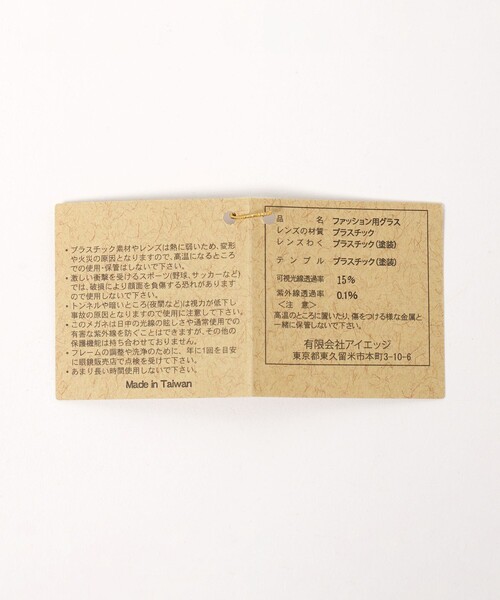 • プラスチック素材やレンズは熱に弱いため、変形
や火災の原因となりますので、高温になるところ
での使用・保管はしないで下さい。
• 激しい衝撃を受けるスポーツ(野球、サッカーなど)
では、破損により顔面を負傷する恐れがあります
ので使用しないで下さい。
• トンネルや暗いところ(夜間など)は視力が低下し
事故の原因となりますので使用に注意して下さい。
• このメガネは日中の光線の眩しさや通常使用での
有害な紫外線を防ぐことはできますが、その他の
保護機能は持ち合わせておりません。
• フレームの調整や洗浄のために、年に1回を目安
に眼鏡販売店で点検を受けて下さい。
• あまり長い時間使用しないで下さい。
Made in Taiwan
品 名 ファッション用グラス
レンズの材質 プラスチック
レンズわく プラスチック(塗装)
テンプル プラスチック(塗装)
可視光線透過率 15%
紫外線透過率 0.1%
<注 意>
高温のところに置いたり、傷をつける様な金属と
一緒に保管しないで下さい。
有限会社アイエッジ
東京都東久留米市本町3-10-6